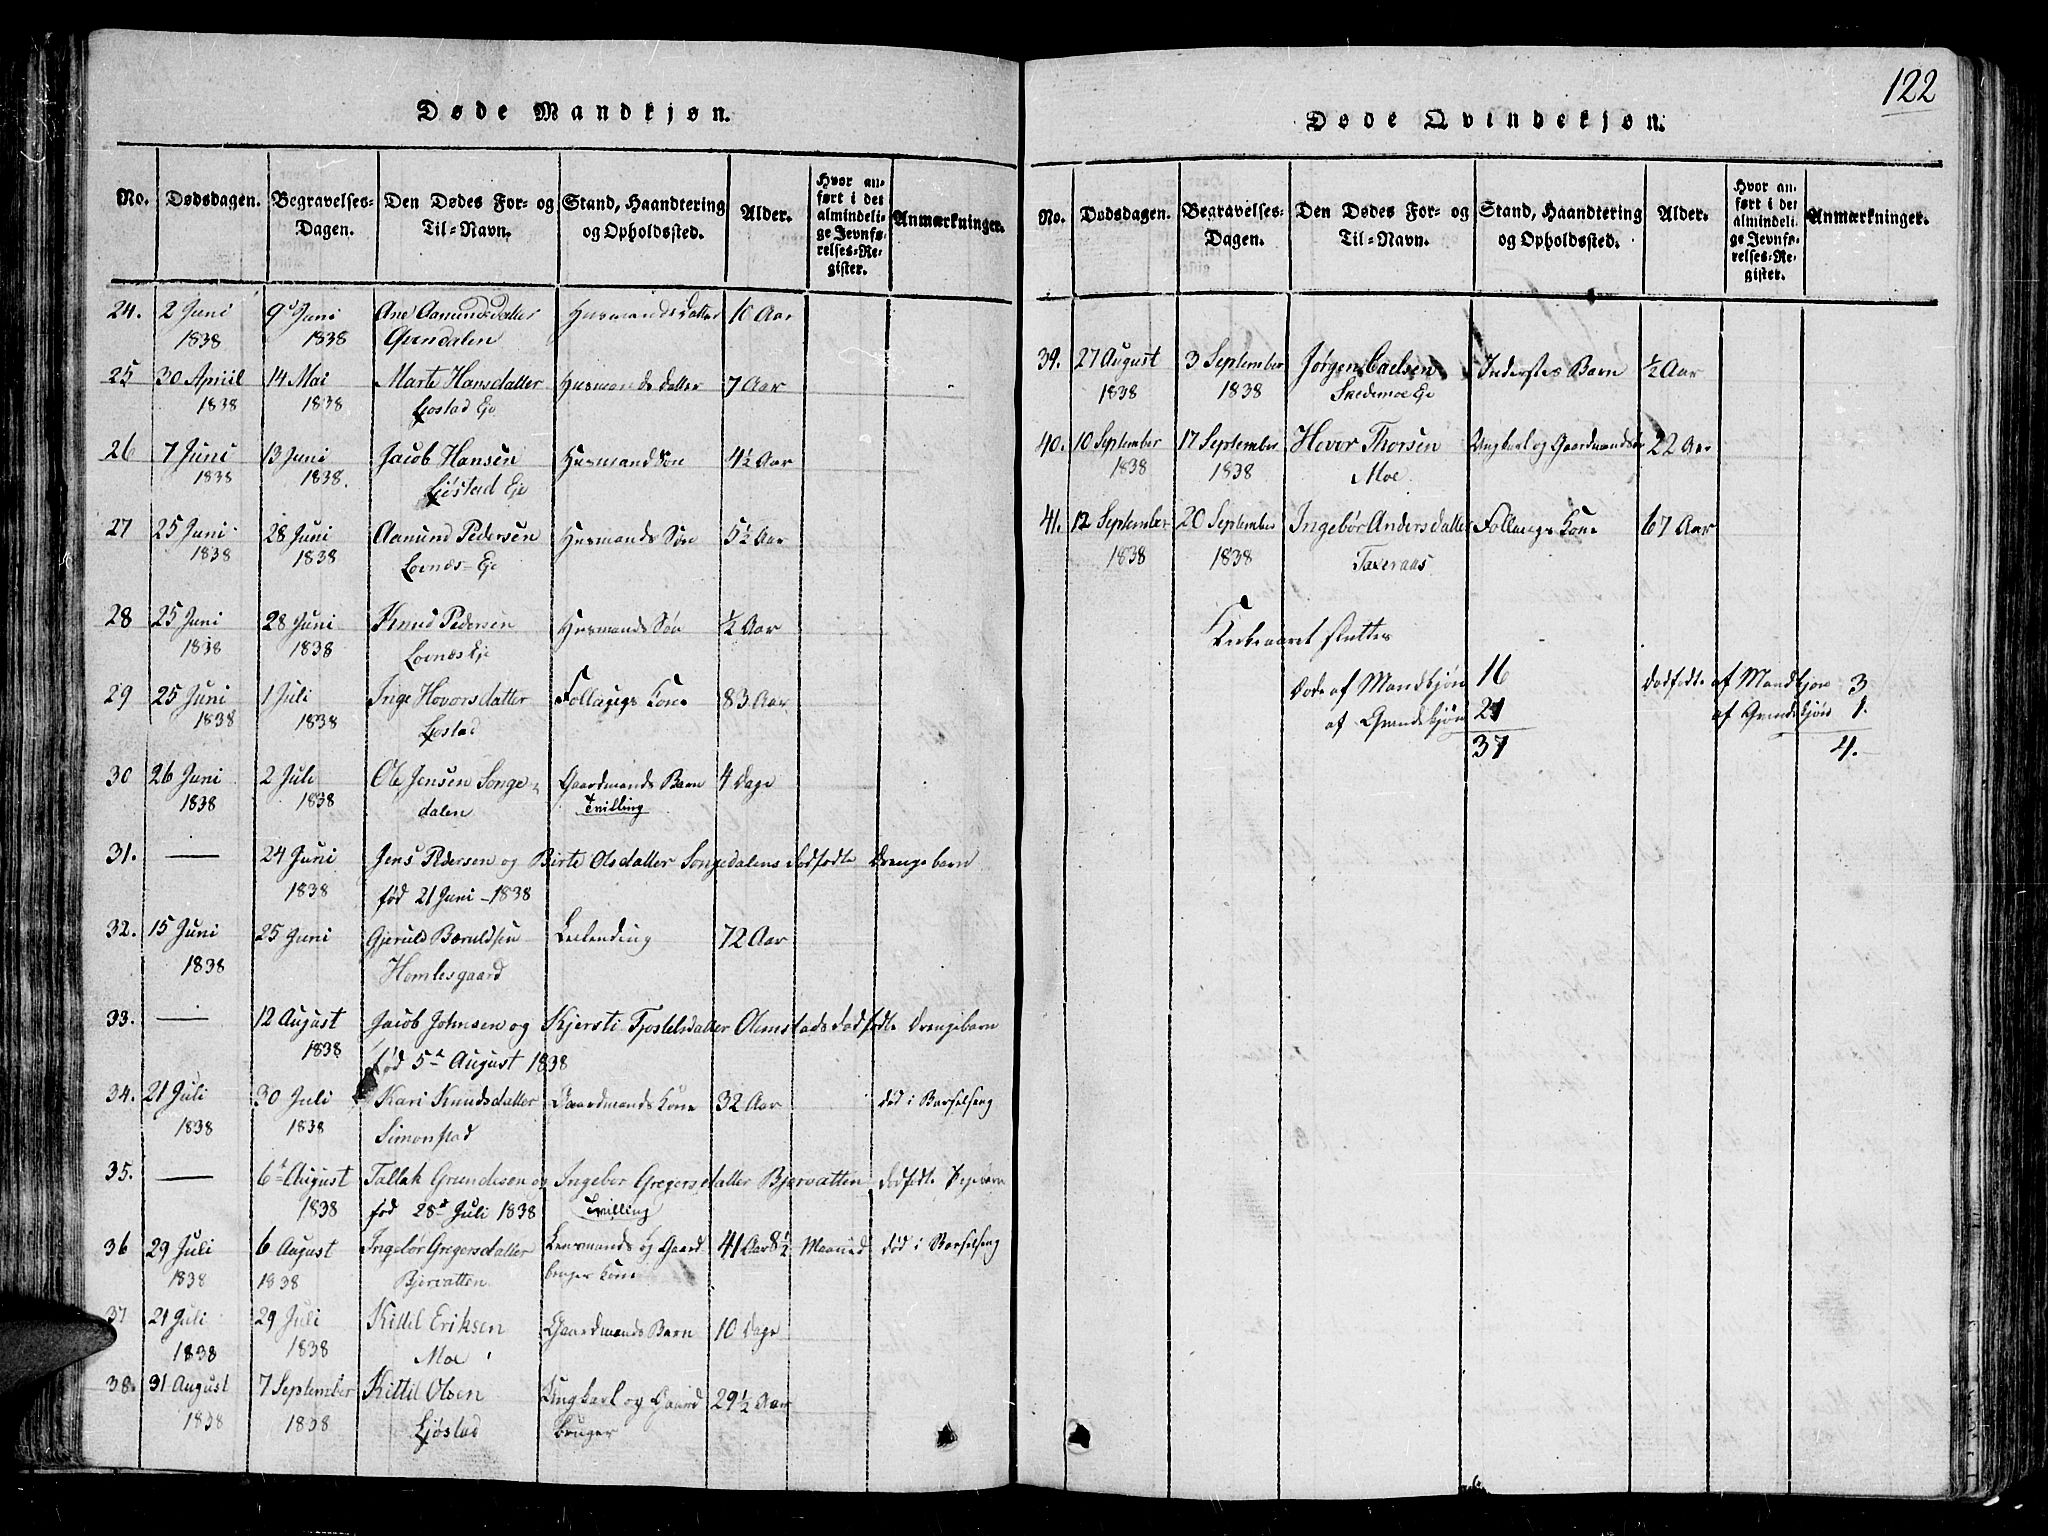 122
Døde Mandkjøn.
No. Dødsdagen. Begravelses-Dagen. Den Dødes For- og Til-Navn. Stand, Haandtering og Opholdssted. Alder. Hvor anført i det almindelige Jevnførelses-Register. Anmærkninger.
24. 2 Juni 9d Juni Ane Aamundsdatter Husmands Datter 10 Aar
1838 1838
25 30 April 14 Mai Marte Hansdatter Husmands datter 7 Aar
1838 1838 Ljostad Eje
26 7 Juni 13 Juni Jacob Hansen Husmand Søn 4½ Aar
1838 1838. Ljøstad Eje
27 25 Juni 28 Juni Aamund Pedersen Husmands Søn 5½ Aar
1838 1838 Lovnæs-Eje
28 25 Juni 28 Juni Knud Pedersen Husmands Søn ½ Aar
1838 1838 Lovnæs Eje
29 25 Juni 1 Juli Inge Hovorsdatter Follaugs Kone 83 Aar
1838 1838 Ljostad
30 26 Juni 2 Juli Ole Jensen Songe- Gaardmands Barn 4 Dage
1838 1838 dalen Tvilling
31. — 24 Juni Jens Pedersen og Birte Olsdatter Songedalens dødfødte Drengebarn
1838 fød 21 Juni - 1838
32. 15 Juni 25 Juni Gjeruld Bæruldsen Leilending 72 Aar
1838 Homlesgaard
33. — 12 August Jacob Johnsen og Kjersti Tjostelsdatter Olimstads dødfødte Drengebarn
1838 fød 5te August 1838
34. 21 Juli 30 Juli Kari Knudsdatter Gaardmands Kone 32 Aar død i Barselseng
1838 1838 Simonstad
35. — 6te August Tallak Gundesen og Ingebor Gregersdatter Bjorvatten dødfødte Pigebarn
1838 fød 28de Juli 1838 Tvilling
36 29 Juli 6 August Ingebor Gregersdatter Lensmands og Gaard 41 Aar 8½ Maaned død i Barselseng
1838 1838 Bjorvatten bruger Kone
37 21 Juli 29 Juli Kittel Eriksen Gaardmands Barn 10 Dage
1838 1838 Moe
38. 31 August 7 September Kittil Olsen Ungkarl og Gaard 29½ Aar
1838 1838 Ljøstad bruger
Døde Qvindekjøn.
No. Dødsdagen. Begravelses-Dagen. Den Dødes For- og Til-Navn. Stand, Haandtering og Opholdssted. Alder. Hvor anført i det almindelige Jevnførelses-Register. Anmærkninger.
39. 27 August 3 September Jørgen Inderstes Barn ½ Aar
1838 1838 Skedsmoe Eje
40. 10 September 17 September Hovor Thorsen Ungkarl og Gaardmandsøn 22 Aar
1838 1838 Moe
41. 12 September 20 September Ingebor Andersdatter Follaugs Kone 67 Aar
1838 1838 Taxeraas
Kirkeaaret slutter
Døde af Mandkjøn 16 Dødfødte af Mandkjøn 3
af Qvindekjøn 21 af Qvindekjøn 1.
37 4.